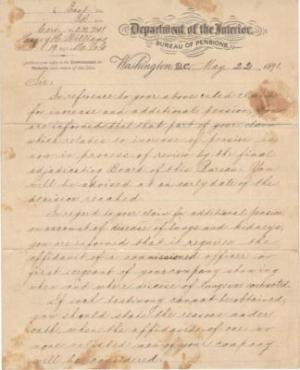 East
Department of the Interior,
BUREAU OF PENSIONS,
Washington, D.C., May 22, 1891.
Sir:
In reference to your above cited claim
for increase and additional pension, you
are informed that that part of your claim
which relates to increase of pension is
now in process of review by the final
adjudicating Board of this Bureau. You
will be advised at an early date of the
decision reached.
In regard to your claim for additional pension
on account of disease of lungs and kidneys,
you are informed that it requires the
affidavit of a commissioned officer or
first sergeant of your company showing
when and where disease of lungs was contracted.
If such testimony cannot be obtained,
you should state the reasons under
oath, when the affidavits of one or
more enlisted men of your company
will be considered.